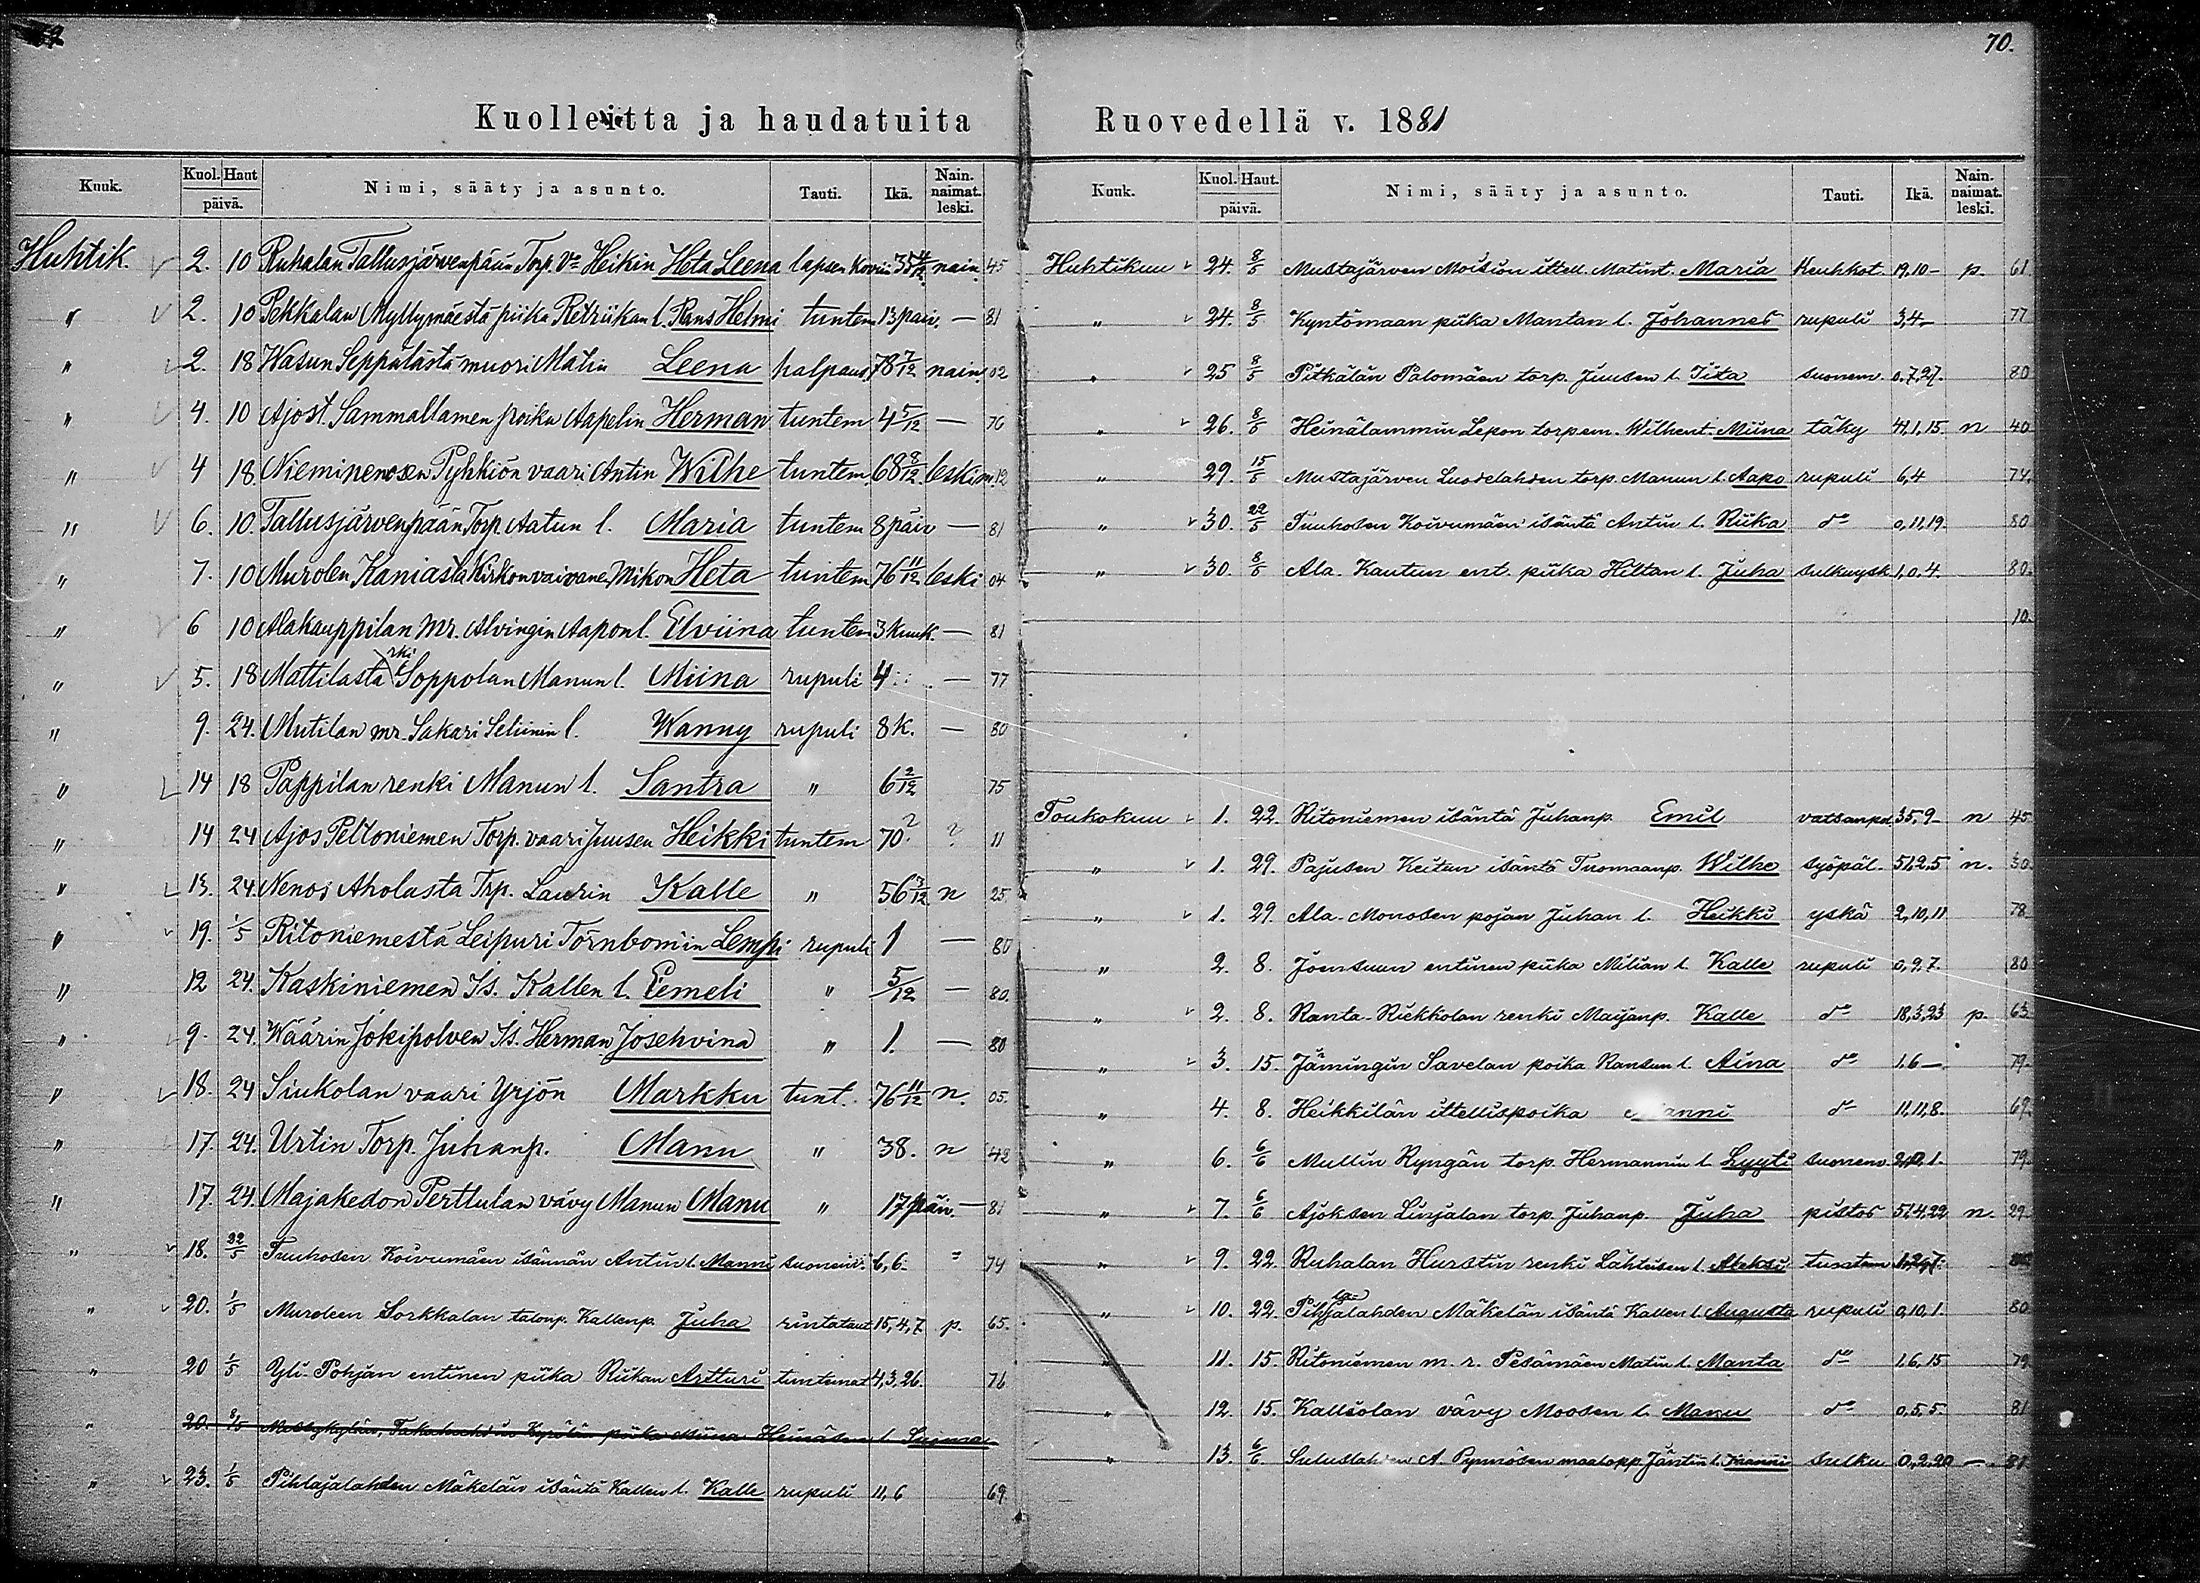 69
Kuolleitta ja haudatuita
Kuuk. Kuol. Haut päivä. Nimi, sääty ja asunto. Tauti. Ikä. Nain. naimat. leski.
Huhtik. 2. 10 Ruhalan Tallusjärvenpään Torp. Vo Heikin Heta Leena lapsen 35 nain. 45
" 2. 10 Pekkalan Myllymäestä piika Retriikan l. Helmi tuntem 13 päiv. — 81
" 2. 18 Wasun Seppälästä muori Matin Leena halpaus 78 7/12 nain. 02
" 4. 10 Ajost. Sammallamen poika Aapelin Herman tuntem 4 5/12 — 76
" 4 18. Nieminenosen Pyhkiön vaari Antin Wilhe tuntem 68 8/12 leskim. 12
" 6. 10. Tallusjärvenpään Torp. Aatun l. Maria tuntem 8 päiv — 81
" 7. 10 Murolen Kaniasta Kirkonvaivanen Mikon Heta tuntem 76 11/12 leski 04
" 6 10 Alakauppilan Mr. Alvingin Aapon l. Elviina tuntem 3 kuuk. — 81
" 5. 18 Mattilasta rki Soppolan Manun l. Miina rupuli 4 — 77
" 9. 24. Mutilan mr. Sakari Seliinin l. Wanny rupuli 8 k. — 80
" 14 18 Pappilan renki Manun l. Santra " 6 2/12 75
" 14 24 Ajos Peltoniemen Torp. vaari Juusen Heikki tuntem 70? ? 11
" 13. 24. Nenosj Aholasta Trp. Laurin Kalle " 56 3/12 n 25
" 19. 1/5 Ritoniemestä Leipuri Törnbomin Lempi rupuli 1 — 80
" 12 24. Kaskiniemen Is. Kallen l. Eemeli " 5/12 — 80.
" 9. 24. Wäärin Jokipolven Is. Herman Josehvina " 1. — 80
" 18. 24 Siukolan vaari Yrjön Markku tunt. 76 11/12 n. 05.
" 17. 24. Urtin Torp. Juhanp. Manu " 38. n 42
" 17. 24. Majakedon Perttulan vävy Manun Manu " 17 päiv. — 81
" 18. 22/5 Tuuhosen Koivumäen isännän Antin l. Manni suonenv. 6,6. " 74
" 20. 1/5 Muroleen Sorkkalan talonp. Kallenp. Juha rintataut 15,4,7. p. 65.
" 20 1/5 Yli-Pohjan entinen piika Riikan Artturi tuntemat 4,3,26. 76
" 20. 8/5 piika Miina Heinäsen l. Saima
" 23. 1/5 Pihlajalahden Mäkelän isäntä Kallen l. Kalle rupuli 11,6 69.
70.
Ruovedellä v. 1881
Kuuk. Kuol. Haut. päivä. Nimi, sääty ja asunto. Tauti. Ikä. Nain. naimat. leski.
Huhtikuu 24. 8/5 Mustajärven Moision ittell. Matint. Maria Keuhkot. 19,10- p. 61.
" 24. 8/5 Kyntömaan piika Mantan l. Johannes rupuli 3,4- 77
" 25 8/5 Pitkälän Palomäen torp. Juusen l. Iita suonem. 0,7,27. 80
" 26. 8/5 Heinälammin Lepon torp. em. Wilhent. Miina täky 41,1,15. n 40
" 29. 15/5 Mustajärven Luodelahden torp. Manun l. Aapo rupuli 6,4 74.
" 30. 22/5 Tuuhosen Koivumäen isäntä Antin l. Riika do 0,11,19. 80
" 30. 8/5 Ala. Kautun ent. piika Hiltan l. Juha sulkuysk. 1,0,4. 80.
10.
Toukokuu 1. 22. Ritoniemen isäntä Juhanp. Emil vatsanpol. 35,9- n 45
" 1. 29. Pajusen Keitun isäntä Tuomaanp. Wilhe syöpäl. 51,2,5 n. 30.
" 1. 29. Ala-Monosen pojan Juhan l. Heikki yskä 2,10,11 78
" 2. 8. Joensuun entinen piika Milian l. Kalle rupuli 0,9,7. 80
" 2. 8. Ranta-Riekkolan renki Maijanp. Kalle do 18,3,23 p. 63
" 3. 15. Jämingin Savelan poika Ransun l. Aina do 1,6— 79.
" 4. 8. Heikkilän ittellispoika do 11,11,8. 69.
" 6. 6/6 Mullin Ryngän torp. Hermannin l. Lyyti suonenv. 2,0,1. 79.
" 7. 6/6 Ajoksen Linjalan torp. Juhanp. Juha pistos 51,4,22 n. 29.
" 9. 22. Ruhalan Hurstin renki Lähteisen l. Aleksi tuntem
" 10. 22. Pihlajalahden Mäkelän isäntä Kallen l. Augusta rupuli 0,10,1. 80
" 11. 15. Ritoniemen m. r. Pesämäen Matin l. Manta do 1,6,15 79
" 12. 15. Kalliolan vävy Moosen l. Manu do 0,5,5. 81
" 13. 6/6 Suluslahden A. Pynnösen maalapp. Jäntin l. sulku 0,2,20 —. 81